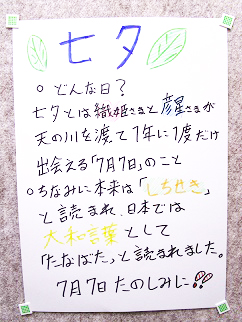 七夕
○ どんな日?
七夕とは織姫さまと彦星さまが
天の川を渡て1年に1度だけ
出会える「7月7日」のこと
○ちなみに本来は「しちせき」
と読まれ、日本では
大和言葉として
「たなばた」と読まれました。
7月7日たのしみに!!